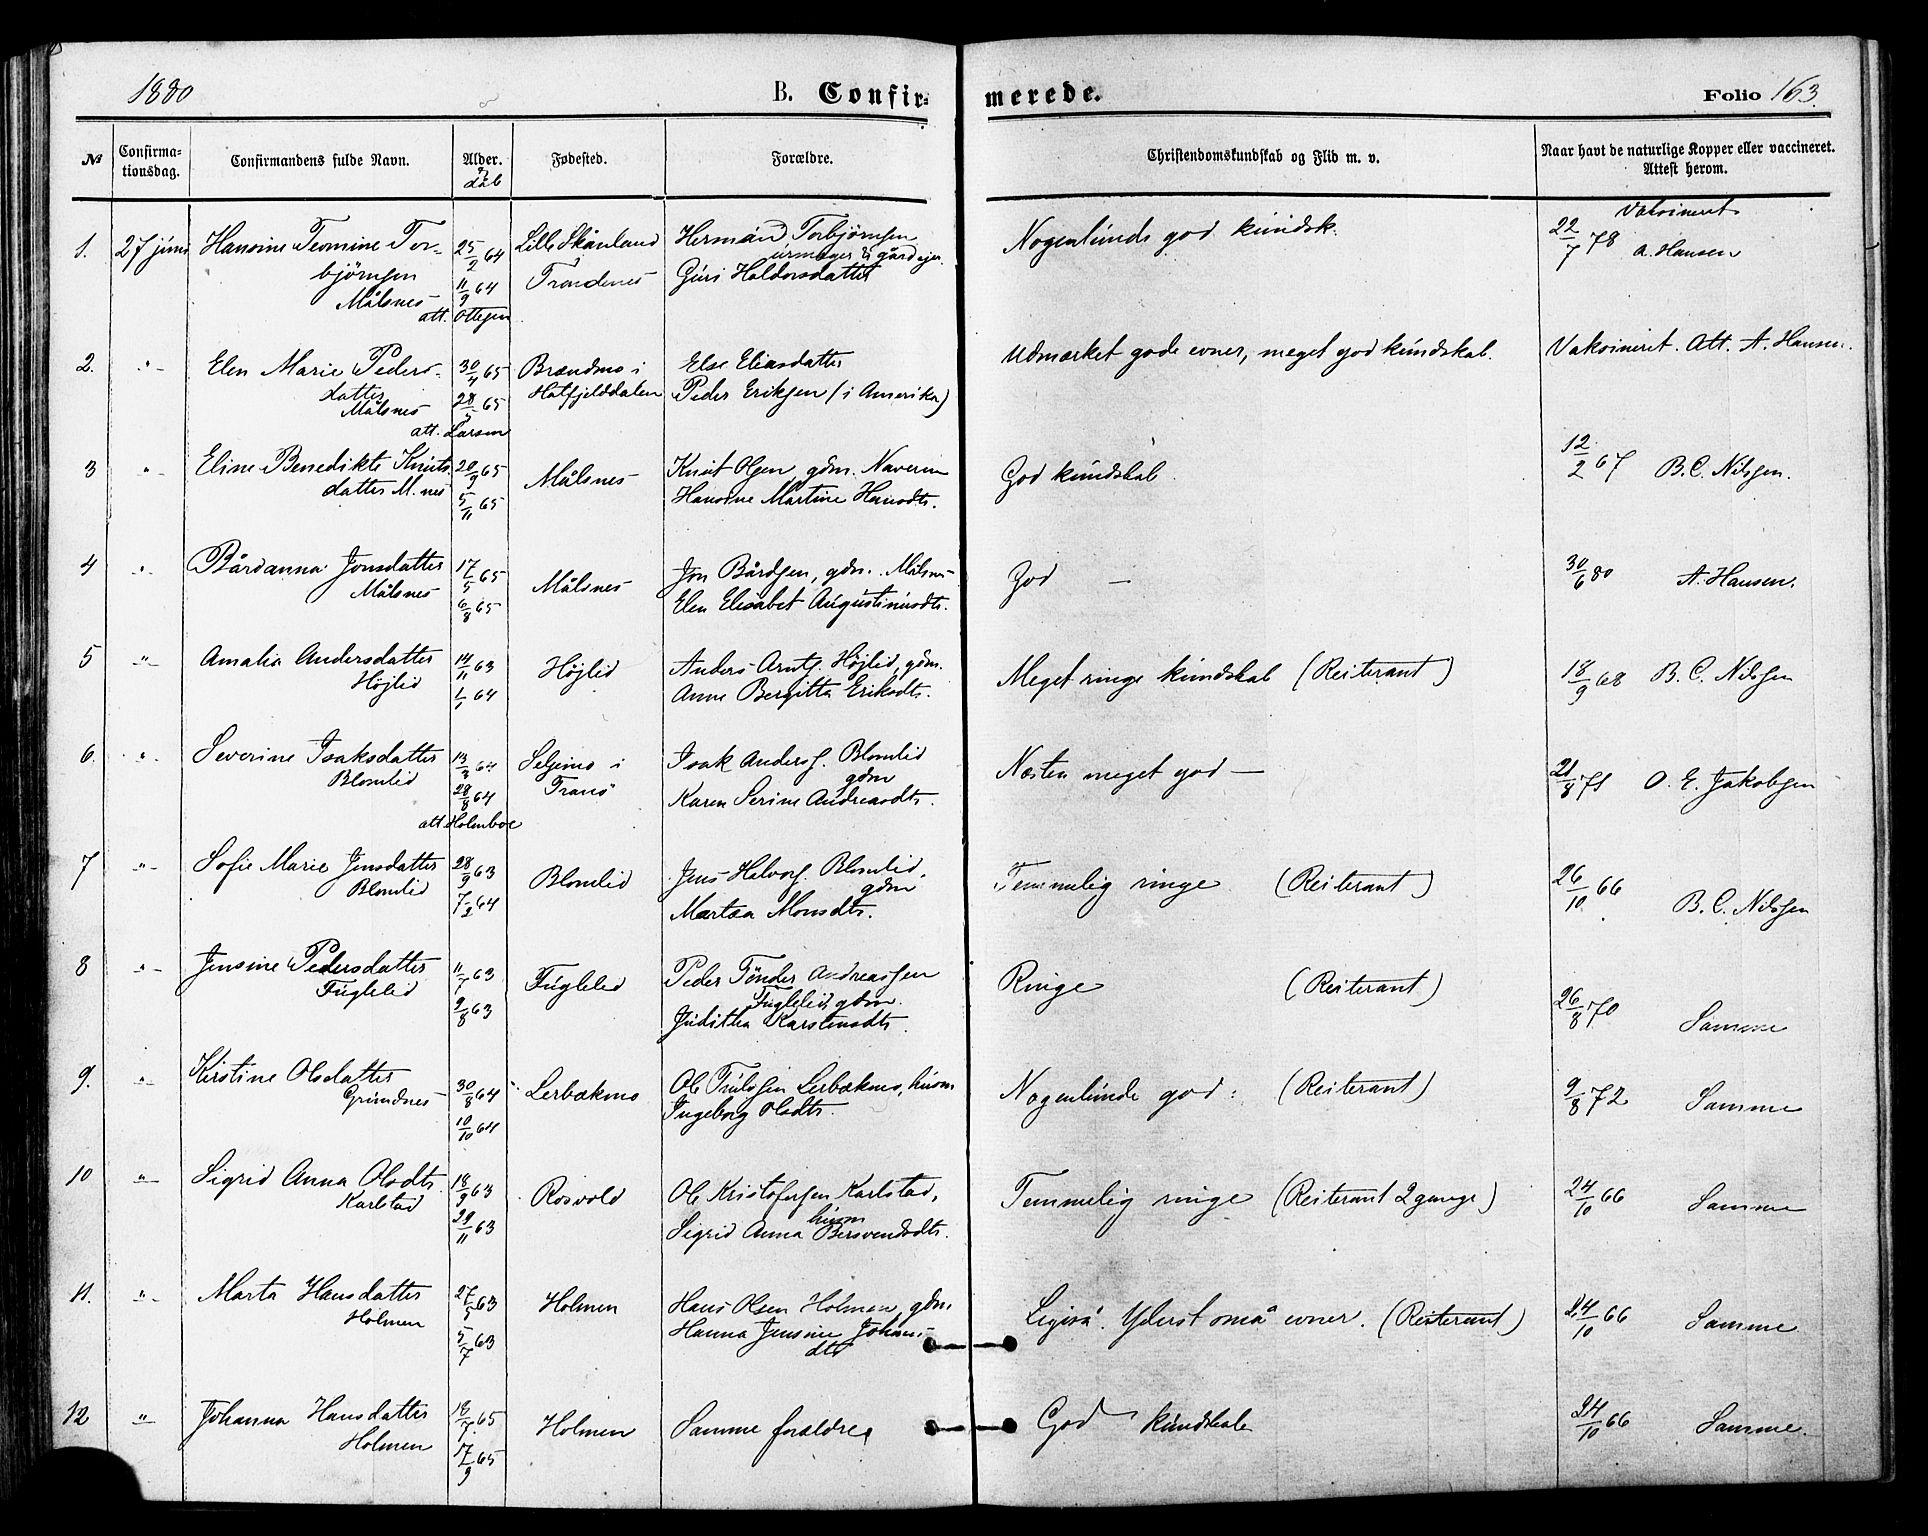 1880 B. Confirmerede. Folio 163.
№ Confirmationsdag. Confirmandens fulde Navn. Alder. Fødested. Forældre. Christendomskundskab og Flid m. v. Naar havt de naturlige Kopper eller vaccineret. Attest herom.
dåb
1. 27 juni Hansine Teomine Tor- 25/2 64 Lille Skånland Herman Torbjörnsen Nogenlunde god kundsk. 22/7 78 Vakcineret
björnsen 11/9 64 Trondenes urmager & gårdejer A. Hansen
Målsnes Guri Haldorsdatter
att. Ottesen
2. " Elen Marie Peders- 30/4 65 Brændmo i Else Eliasdatter Udmærket gode evner, meget god kundskab. Vakcineret. Att. A. Hansen.
datter 28/5 65 Hatfjelddalen Peder Eriksen (i Amerika)
Målsnes
att. Larsen
3 " Eline Benedikte Knuts 20/9 65 Målsnes Knut Olsen, gdm. Naveren God kundskab. 12/2 67 B. C. Nilsen.
datter M.nes 5/11 65 Hansine Martine Hansdtr.
4 " Bårdanna Jonsdatter 17/5 65 Målsnes Jon Bårdsen, gdm. Målsnes God — 30/6 80 A. Hansen.
Målsnes 6/8 65 Elen Elisabet Augustinusdtr.
5 " Amalia Andersdatter 14/11 63 Højlid Anders Arnts. Højlid, gdm. Meget ringe kundskab (Reiterant) 18/9 68 B. C. Nilsen
Højlid 1/1 64 Anne Bergitta Eriksdtr.
6. " Severine Isaksdatter 13/3 64 Seljemo i Isak Anders. Blomlid Næsten meget god — 21/8 71 O. E. Jakobsen
Blomlid 28/8 64 Tranö gdm
att. Holmboe Karen Serine Andreasdtr.
7 " Sofie Marie Jensdatter 28/9 63 Blomlid Jens Halvors. Blomlid, Temmelig ringe (Reiterant) 26/10 66 B. C. Nilsen
Blomlid 7/2 64 gdm
Martha Monsdtr.
8 " Jensine Pedersdatter 11/7 63 Fuglelid Peder Tönder Andreassen Ringe (Reiterant) 26/8 70 Samme
Fuglelid 9/8 63 Fuglelid, gdm.
Juditha Karstensdtr.
9. " Kirstine Olsdatter 30/8 64 Lerbækmo Ole Trulssen Lerbækmo, husm Nogenlunde god: (Reiterant) 9/8 72 Samme
Grundnes 10/10 64 Ingeborg Olsdtr.
10 " Sigrid Anna Olsdtr. 18/9 63 Rosvold Ole Kristofersen Karlstad, Temmelig ringe (Reiterant 2 gange) 24/10 66 Samme
Karlstad 29/11 63 husm
Sigrid Anna Bersvendsdtr.
11. " Marta Hansdatter 27/5 63 Holmen Hans Olsen Holmen, gdm. Ligeså. Yderst små evner. (Reiterant) 24/10 66 Samme
Holmen 5/7 63 Hanna Jensine Johans-
dtr
12 " Johanna Hansdatter 18/7 65 Holmen Samme forældre God kundskab 24/10 66 Samme.
Holmen 17/9 65